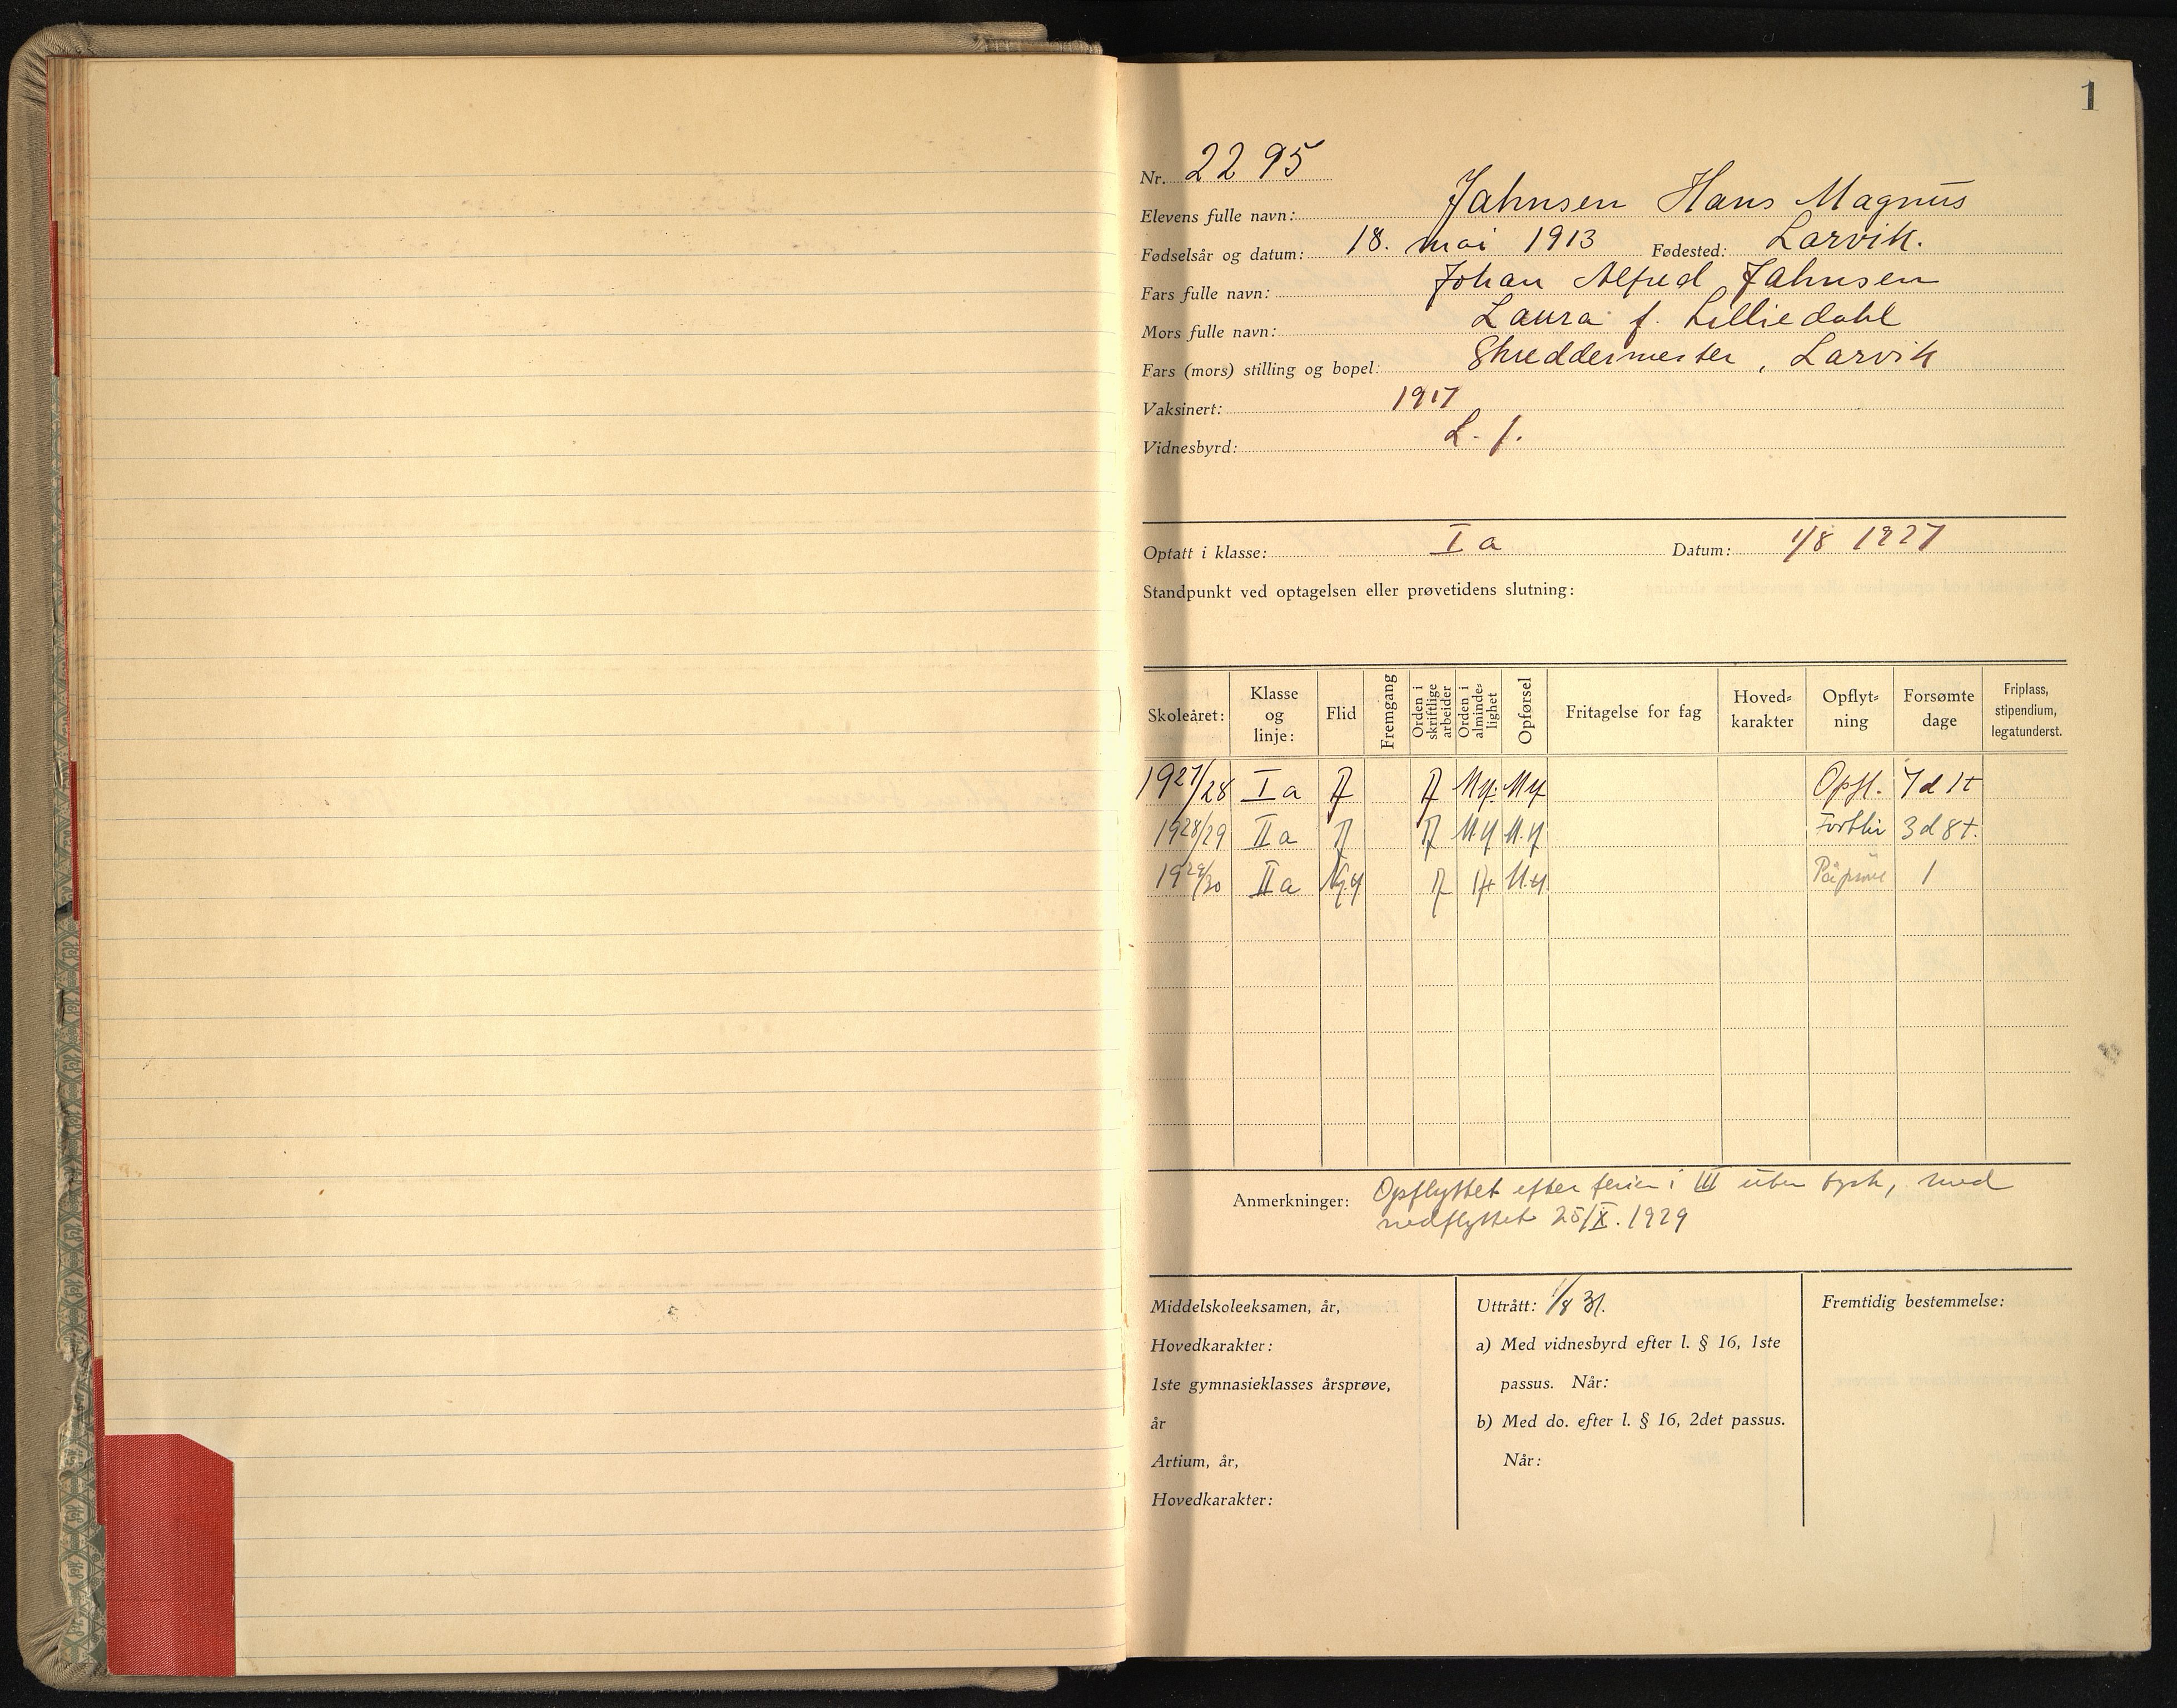 1
Nr. 2295
Elevens fulle navn: Jahnsen Hans Magnus
Fødselsår og datum: 18. mai 1913 Fødested: Larvik.
Fars fulle navn: Johan Alfred Jahnsen
Mors fulle navn: Laura f. Lilliedahl
Fars (mors) stilling og bopel: Skreddermester, Larvik
Vaksinert: 1917
Vidnesbyrd: L. f.
Optatt i klasse: I a Datum: 1/8 1927
Standpunkt ved optagelsen eller prøvetidens slutning:
Skoleåret: Klasse og linje: Flid Fremgang Orden i skriftlige arbeider Orden i almindelighet Opførsel Fritagelse for fag Hovedkarakter Opflytning Forsømte dage Friplass, stipendium, legatunderst.
1927/28 I a My. My Opfl. 7 d 1 t
1928/29 II a My M.y Forblir 3 d 8 t.
1929/30 II a Ng.y M.y På prøve 1
Anmerkninger: Opflyttet efter ferien i III uten tysk, med
nedflyttet 25/X. 1929
Middelskoleeksamen, år, Uttrått: 1/8 31. Fremtidig bestemmelse:
Hovedkarakter: a) Med vidnesbyrd efter l. § 16, 1ste
1ste gymnasieklasses årsprøve, passus. Når:
år b) Med do. efter l. § 16, 2det passus.
Artium, år, Når:
Hovedkarakter: